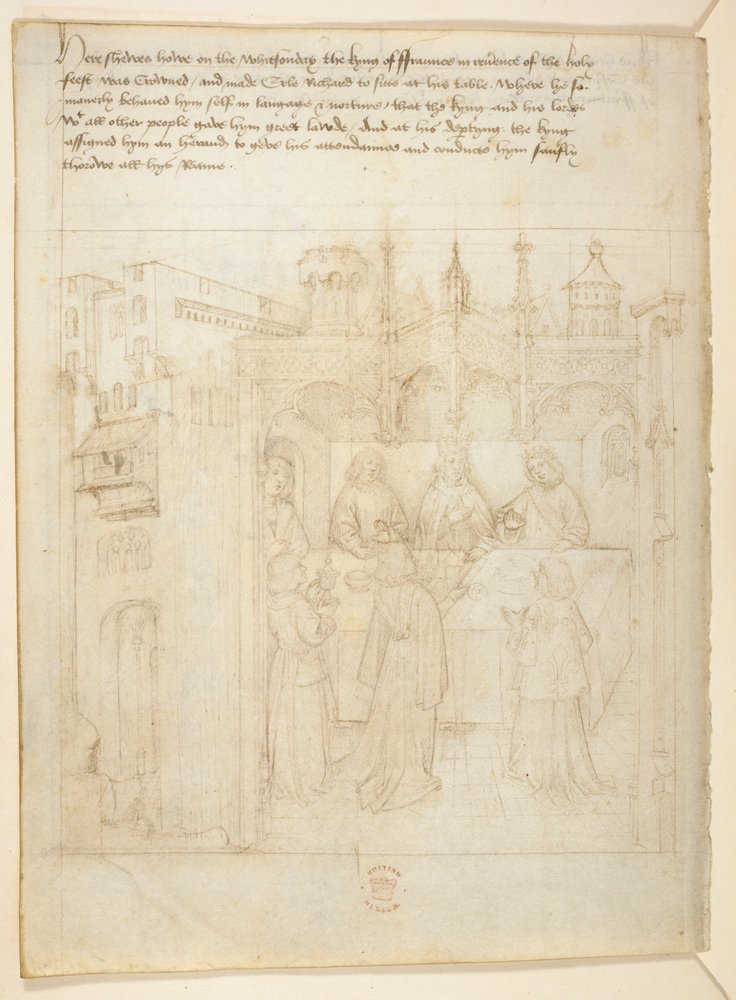 Here shewes howe on the whitsonday the kyng of ffraunce in reuͬence of the holy
feest was Crowned / and made Erle Richard to sitte at his table. Where he so
manerly behaued hym self in langage & norture / that the kyng and his lordes
wͭ all other people gave hym greet lawde / And at his deꝑtyng the kyng
assigned hym an heraud to geve his attendaunce and conducte hym saufly
thorowe all hys Reame .
BRITISH
MUSEUM